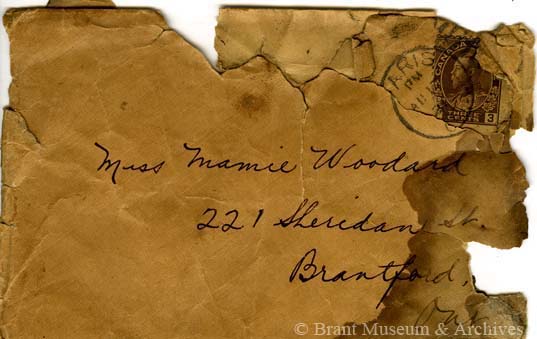 PARIS
PM
CANADA
THREE
CENTS 3
Miss Mamie Woodard
221 Sheridan St.
Brantford,
Ont
© Brant Museum & Archives